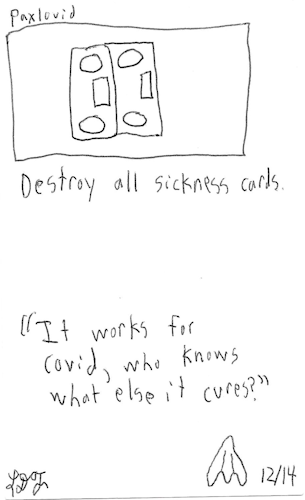 Paxlovid
Destroy all sickness cards.
"It works for
covid, who knows
what else it cures?"
12/14